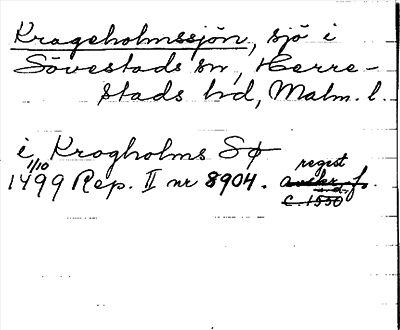 Krageholmssjön, sjö i
Sövestads sn, Herre-
stads hd, Malm. l.
i Krogholms Sø
1/10 regist
1499 Rep. II nr 8904. avskr. f.
c. 1550